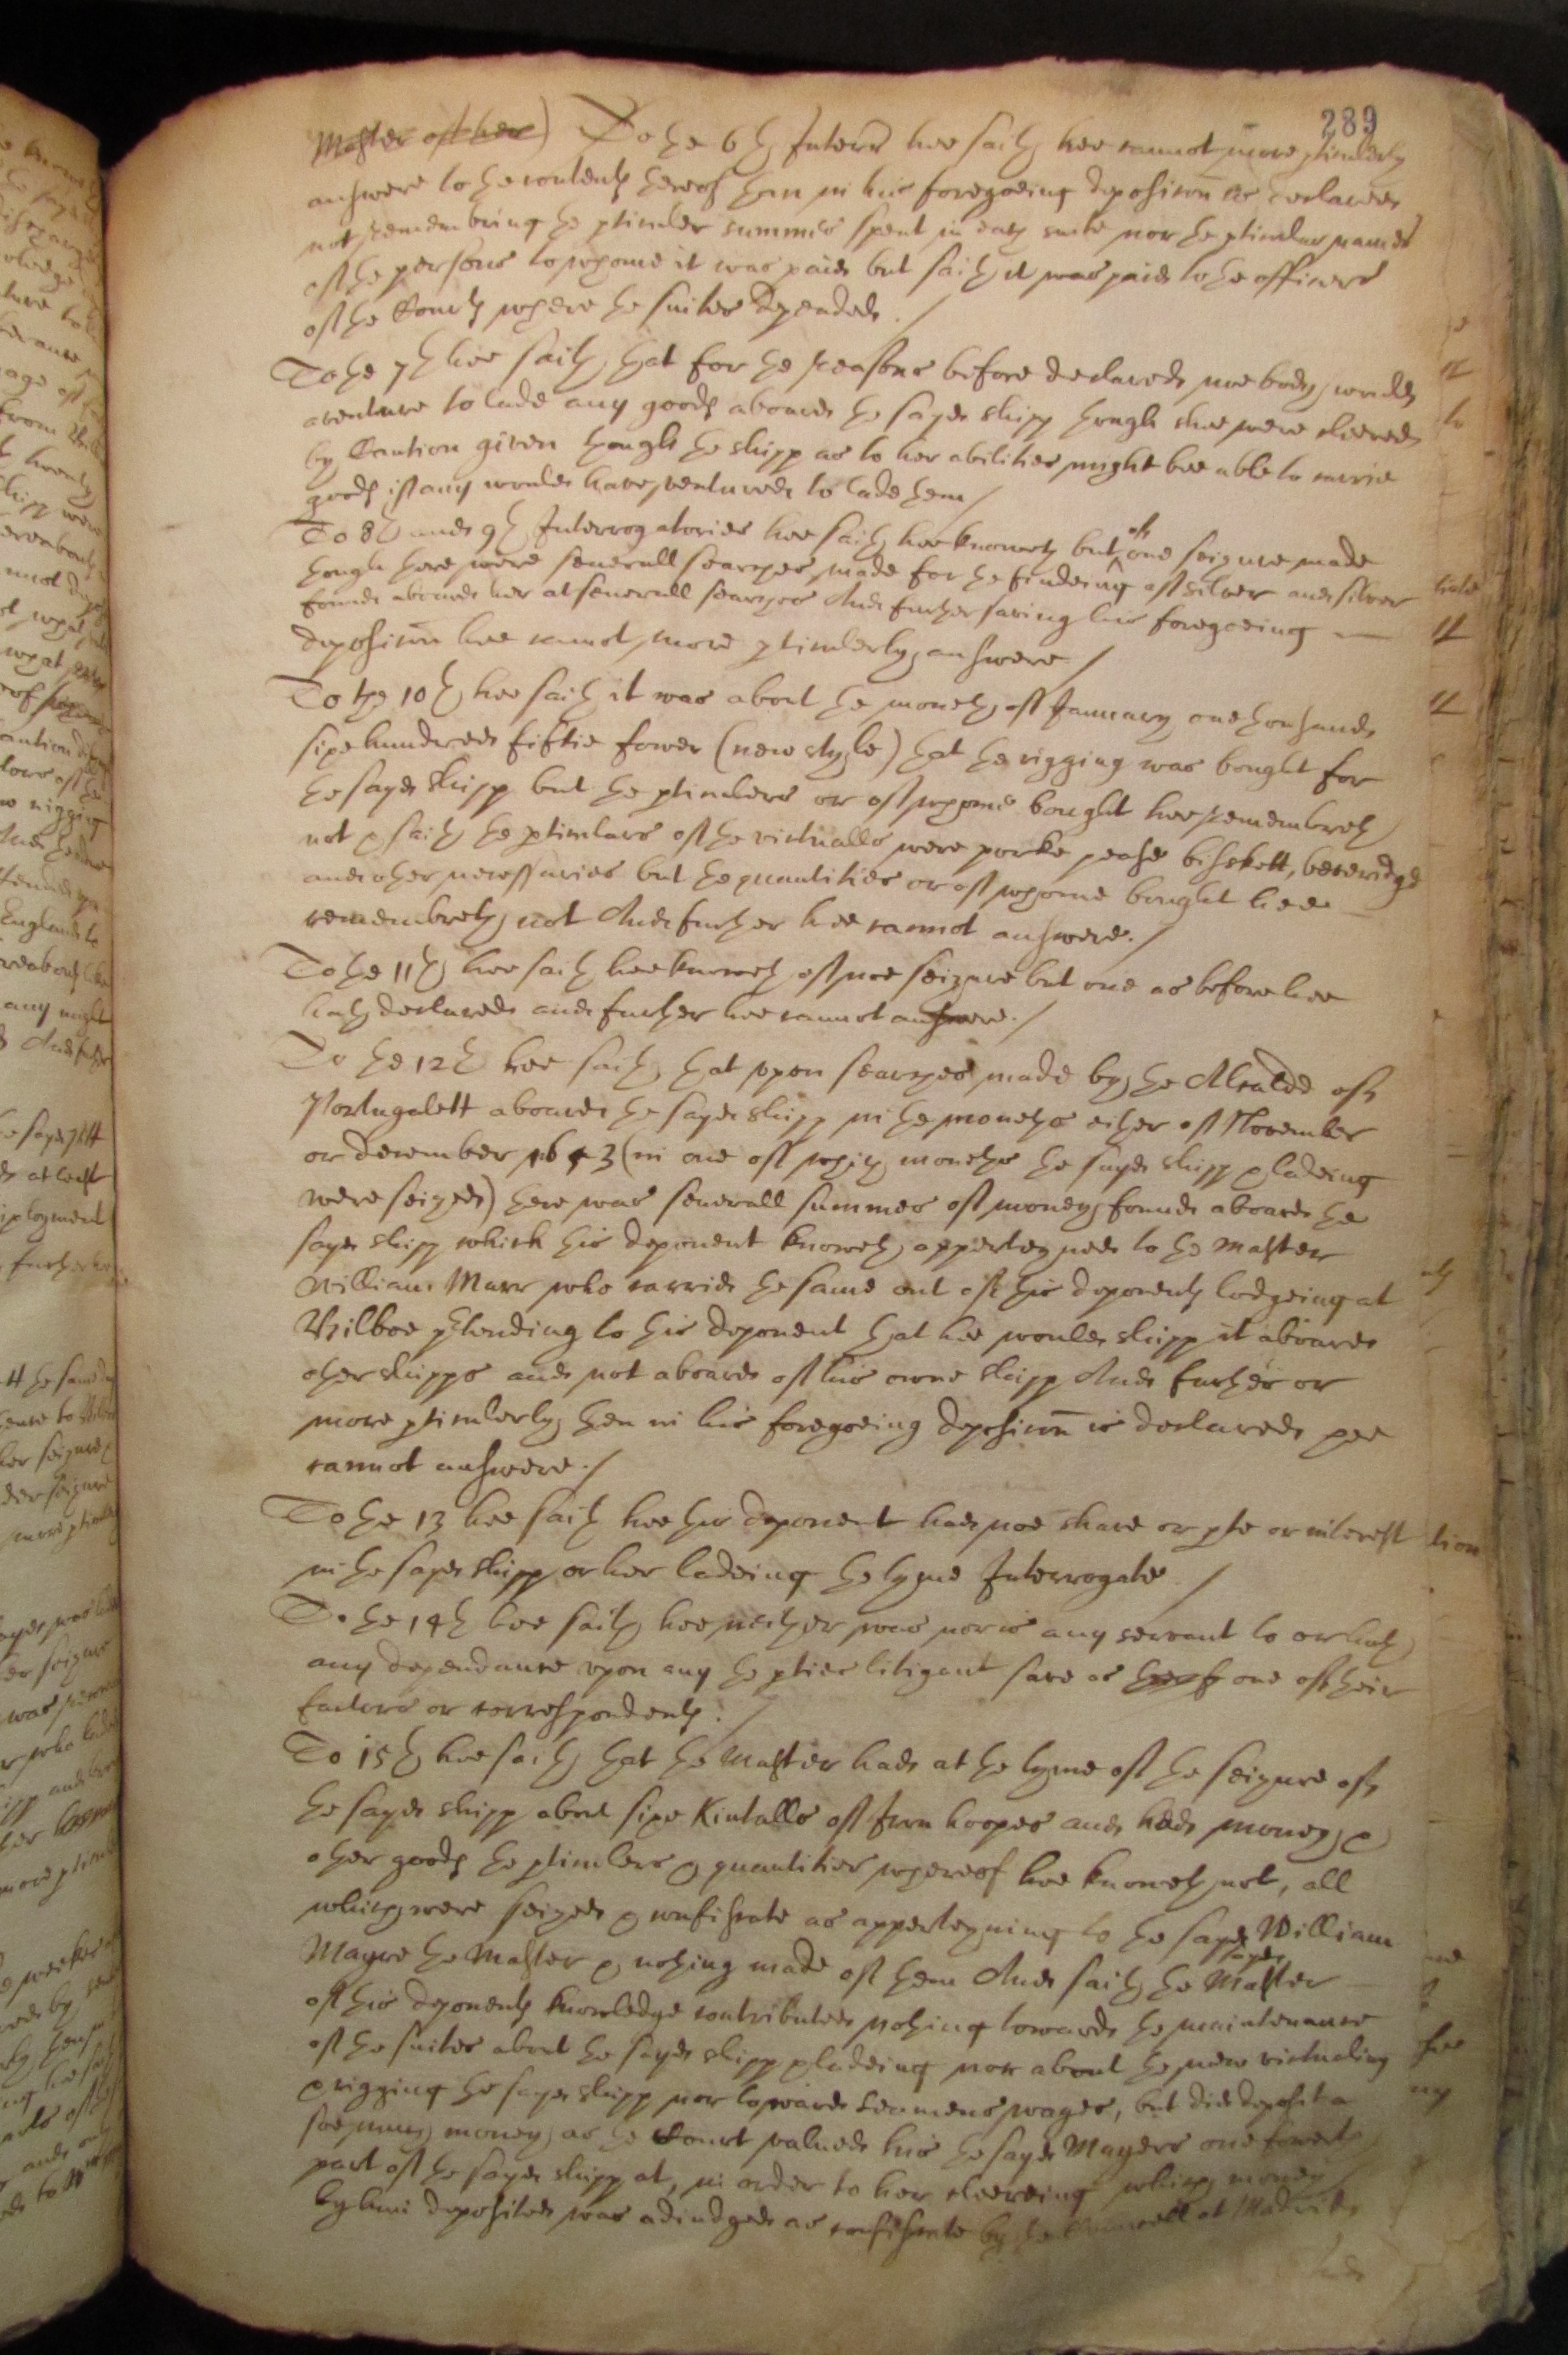 289
Master of her) To the 6th Interr hee saith hee cannot more pticulerly
answere to the contents thereof than in his foregoeing deposicon is declared
not remembring the pticuler summes spent in each suite nor the pticuler names
of the persons to whome it was paid but saith it was paid to the officers
of the Courts where the suites depended./
To the 7th hee saith that for the reasons before declared noe body would
aventure to lade any goods aboard the sayd shipp though shee were cleered
by Caution given though the shipp as to her abilities might bee able to carrie
goods if any would have ventured to lade them/
To 8th and 9th Interrogatories hee saith hee knoweth but of one seizure made
though there were severall searches made for the findeing of silver and silver
found aboard her at severall searches And further saving his foregoeing
deposicon hee cannot more pticulerly answere/
To the 10th hee saith it was about the moneth of January one thousand
sixe hundred fiftie fower (new style) that the rigging was bought for
the sayd shipp but the pticulers or of whome bought hee remembreth
not & saith the pticulars of the victualls were porke pease bisskett, beveridge
and other necessaries but the quantities or of whome bought hee
remembreth not And further hee cannot answere./
To the 11th hee saith hee knoweth of noe seizure but one as before hee
hath declared and further hee cannot answere./
To the 12th hee saith that upon searches made by the Alcalde of
Portugalett aboard the sayd shipp in the moneths either of November
or december 1653 (in one of which moneths the sayd shipp & ladeing
were seized) there was severall summes of money found aboard the
sayd shipp which this deponent knoweth apperteyned to the Master
William Marr who carried the same out of this deponents lodgeing at
Bilboe ptending to this deponent that hee would shipp it aboard
other shipps and not aboard of his owne shipp And further or
more pticulerly then in his foregoeing deposicon is declared hee
cannot answere./
To the 13 hee saith hee this deponent had noe share or pte or interest
in the sayd shipp or her ladeing the tyme Interrogate/
To the 14th hee saith hee neither was nor is any servant to or hath
any dependance upon any the pties litigant save as one of their
factors or correspondents./
To 15th hee saith that the Master had at the tyme of the seizure of
the sayd shipp about sixe Kintalls of Iron hoopes and had money &
other goods the pticulers & quantities whereof hee knoweth not, all
which were seized & confiscate as apperteyning to the sayd William
Mayre the Master & nothing made of them And saith the sayd Master
of this deponents knowledge contributed nothing towards the maintenance
of the suites about the sayd shipp & ladeing nor about the new victualing
& rigging the sayd shipp nor towards seamens wages, but did deposit a
soe much money as the Court valued his the sayd Mayers one fowerth
part of the sayd shipp at, in order to her cleereing which money
by him deposited was adiudged as confiscate by the Councell at Madrid